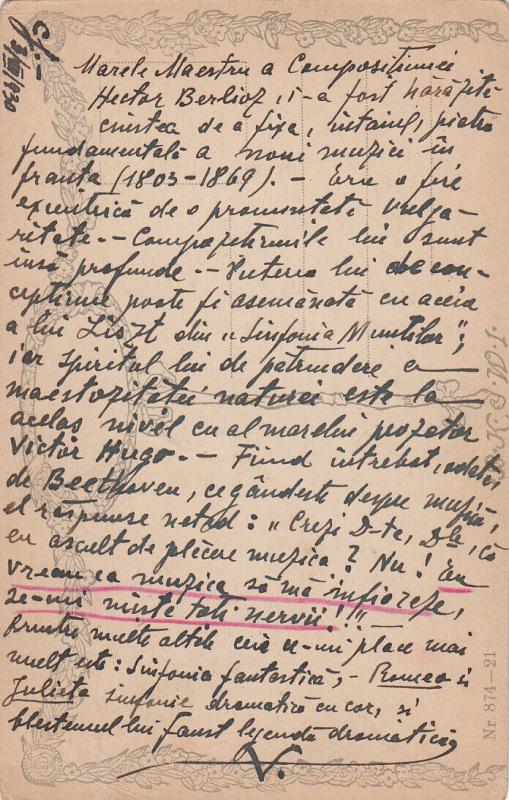 Cl.-
3/VII/1930
Marele Maestru a Compozitiunei
Hector Berlioz, i-a fost hărăzită
cinstea de a fixa, întaiul, piatra
fundamentală a noui muzici în
franta (1803-1869). - Era o fire
exentrică de o pronuntată vulga-
ritate. - Compozitiunile lui sunt
însă profunde. - Puterea lui de con-
ceptiune poate fi asemănată cu aceia
a lui Liszt din "Sinfonia Muntilor";
iar spiritul lui de pătrundere a
maestozitătii naturei este la
acelas nivel cu al marelui prozator
Victor Hugo. - Fiind întrebat, odată
de Beethoven, ce gândeste despre muzică,
el răspunse neted: "Crezi D-ta, Dle, că
eu ascult de plăcere muzica? Nu! Eu
vreau ca muzica să mă înfioreze,
să-mi miste toti nervii!"
Printre multe altele ceia ce-mi place mai
mult este: Sinfonia fantastică, - Romeo si
Julieta sinfonie dramatică cu cor, si
blestemul lui Faust legendă dramatică,
V.
Nr 874-21